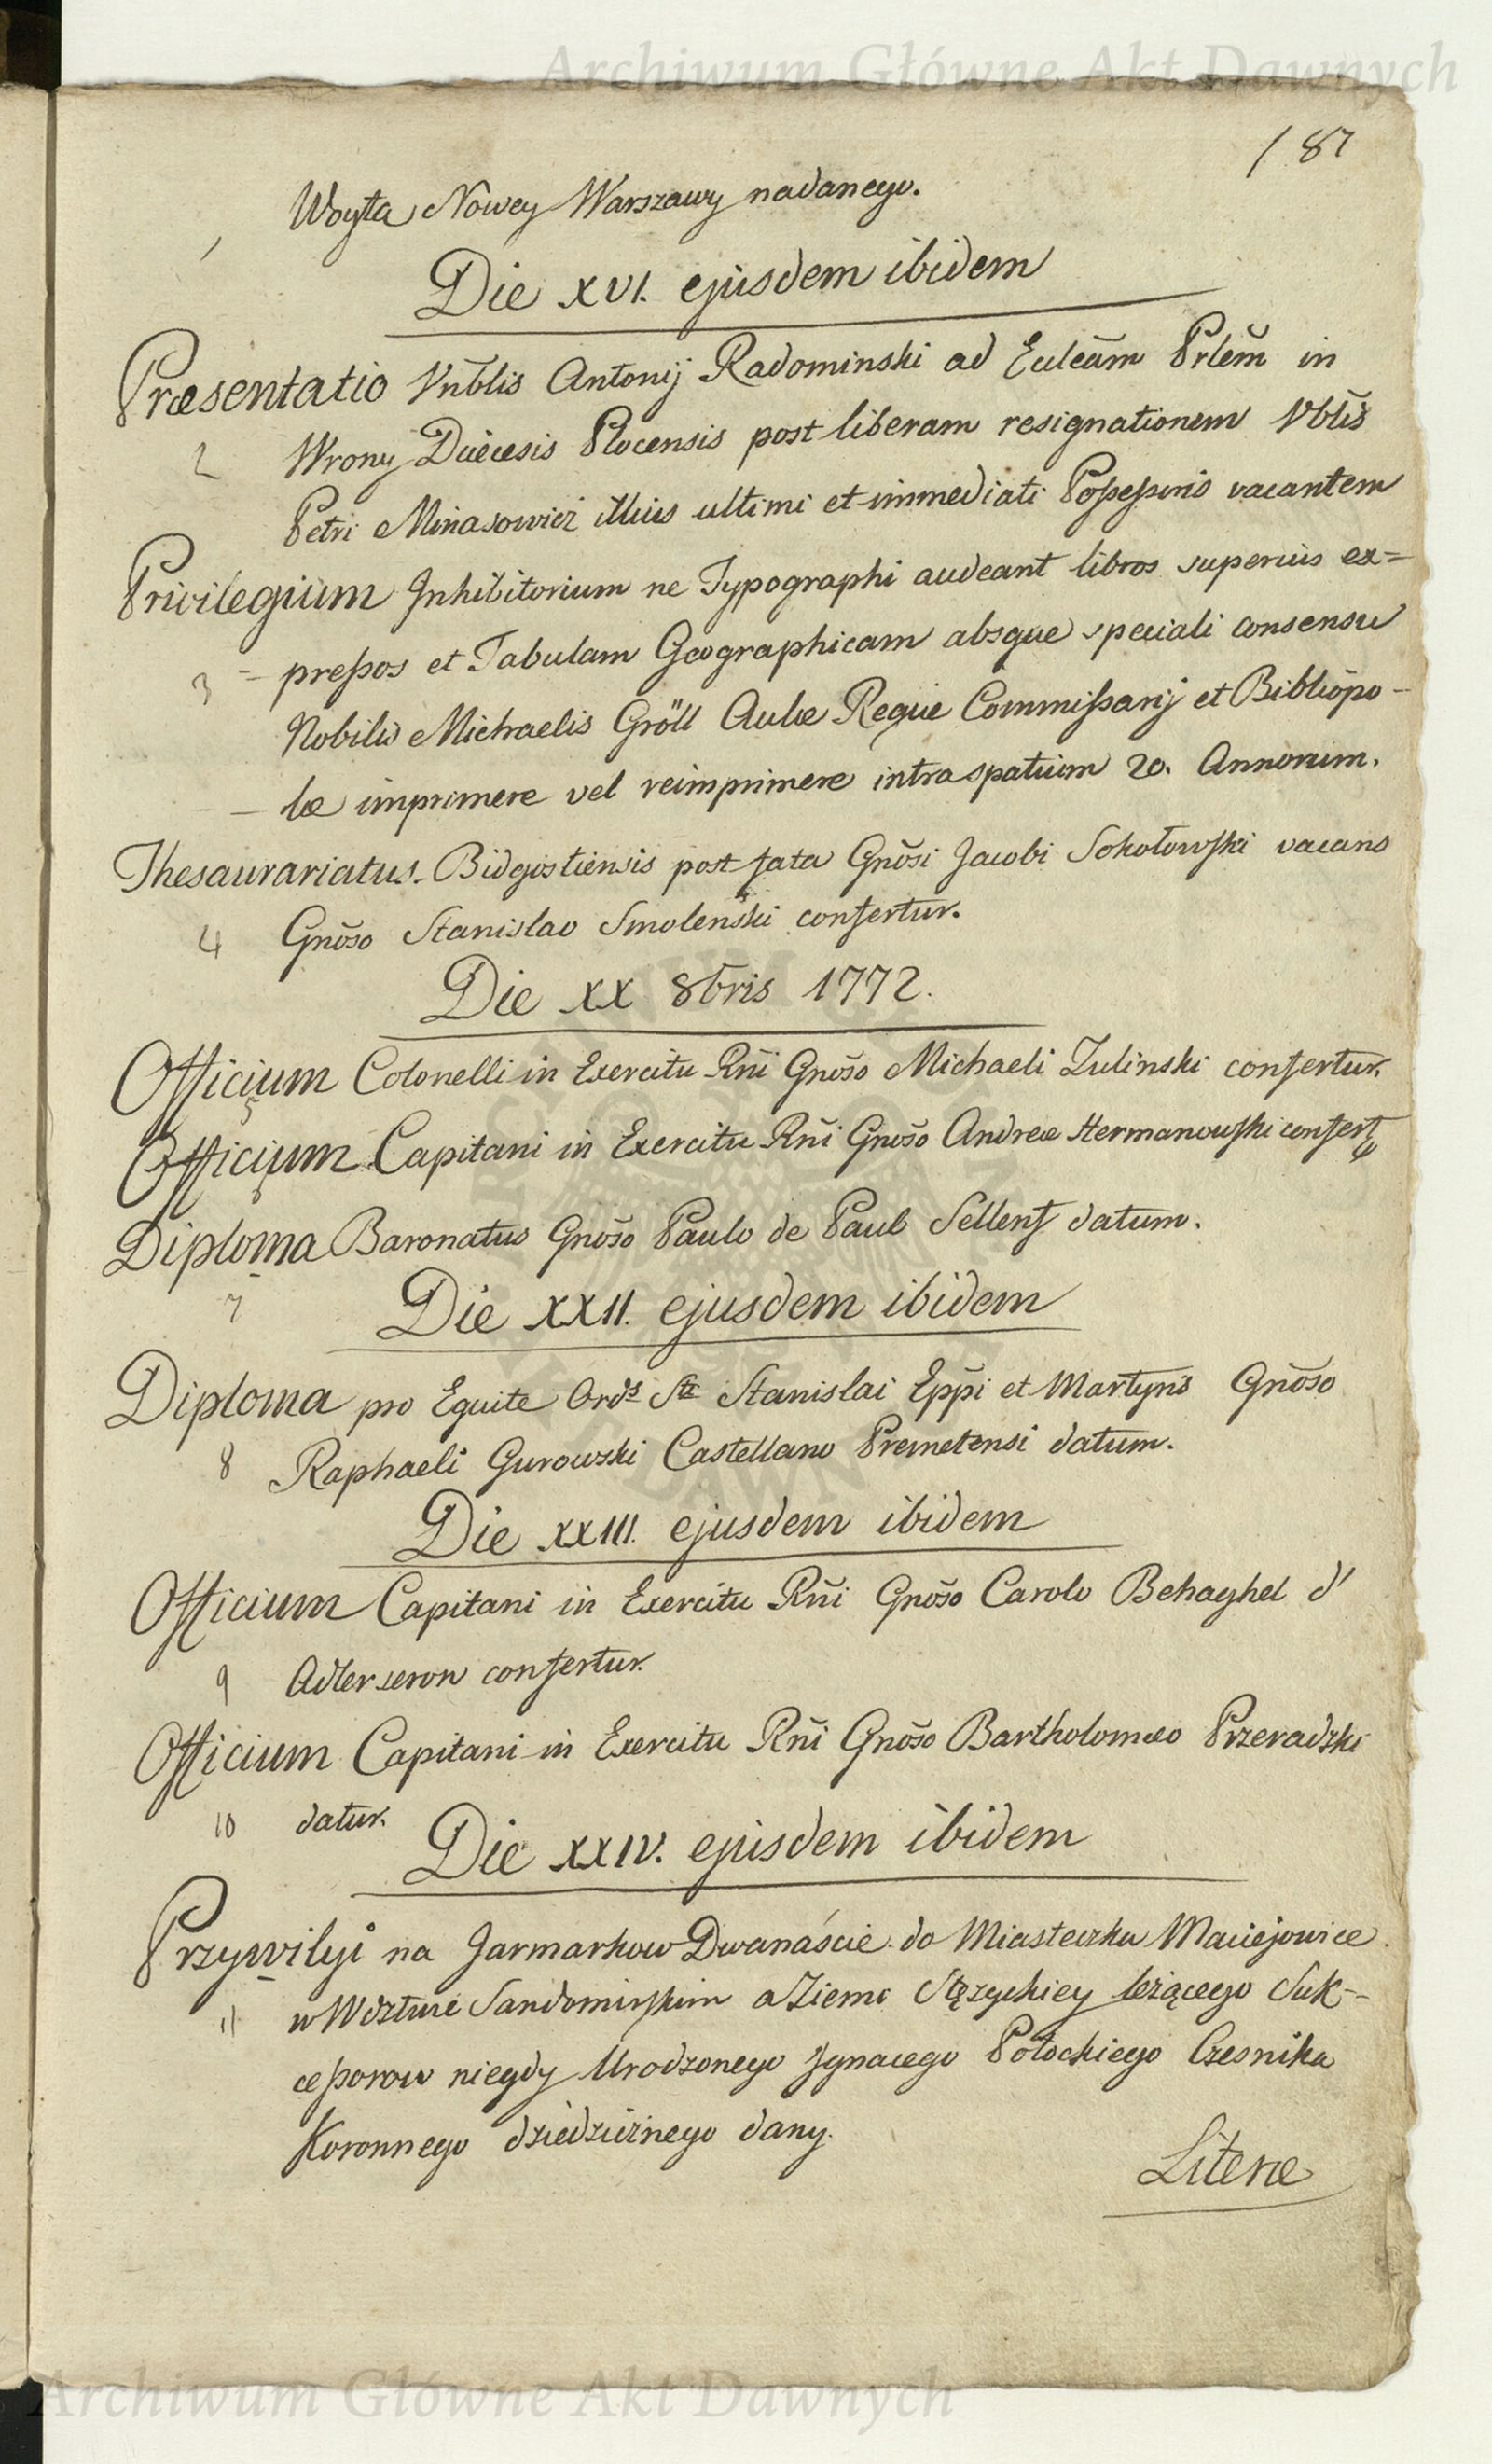 Archiwum Główne Akt Dawnych
187
Woyta Nowey Warszawy nadanego.
1
Die XVI. ejusdem ibidem
Præsentatio Vnblis Antonij Radominski ad Eccleām Prlēm in
2 Wrony Diæcesis Plocensis post liberam resignationem Vblis
Petri Minasowicz illius ultimi et immediati Possessoris vacantem
Privilegium Inhibitorium ne Typographi audeant libros superius ex=
3 = pressos et Tabulam Geographicam absque speciali consensu
Nobilis Michaelis Gröll Aulæ Regiæ Commissarij et Bibliopo-
- læ imprimere vel reimprimere intra spatium 20. Annorum.
Thesaurariatus Bidgostiensis post fata Gnōsi Jacobi Sokołowski vacans
4 Gnōso Stanislao Smolenski confertur.
Die XX 8bris 1772.
Officium Colonelli in Exercitu Rñi Gnōso Michaeli Zulinski confertur.
5
Officium Capitani in Exercitu Rñi Gnōso Andreæ Hermanowski confert
6
Diploma Baronatus Gnōso Paulo de Paul Sellent datum.
7
Die XXII. ejusdem ibidem
Diploma pro Equite Ords Sti Stanislai Eppi et Martyris Gnōso
8 Raphaeli Gurowski Castellano Premetensi datum.
Die XXIII. ejusdem ibidem
Officium Capitani in Exercitu Rñi Gnōso Carolo Behaghel d'
9 Adlerseron confertur.
Officium Capitani in Exercitu Rñi Gnōso Bartholomæo Przeradzki
10 datur.
Die XXIV. ejusdem ibidem
Przywilyi na Jarmarkow Dwanaście do Miasteczka Maciejowice
11 w Wdztwie Sandomirskim a Ziemi Stęzyckiey leżącego Suk-
cessorow niegdy Urodzonego Ignacego Potockiego Czesnika
Koronnego dziedzicznego dany.
Literæ
Archiwum Główne Akt Dawnych